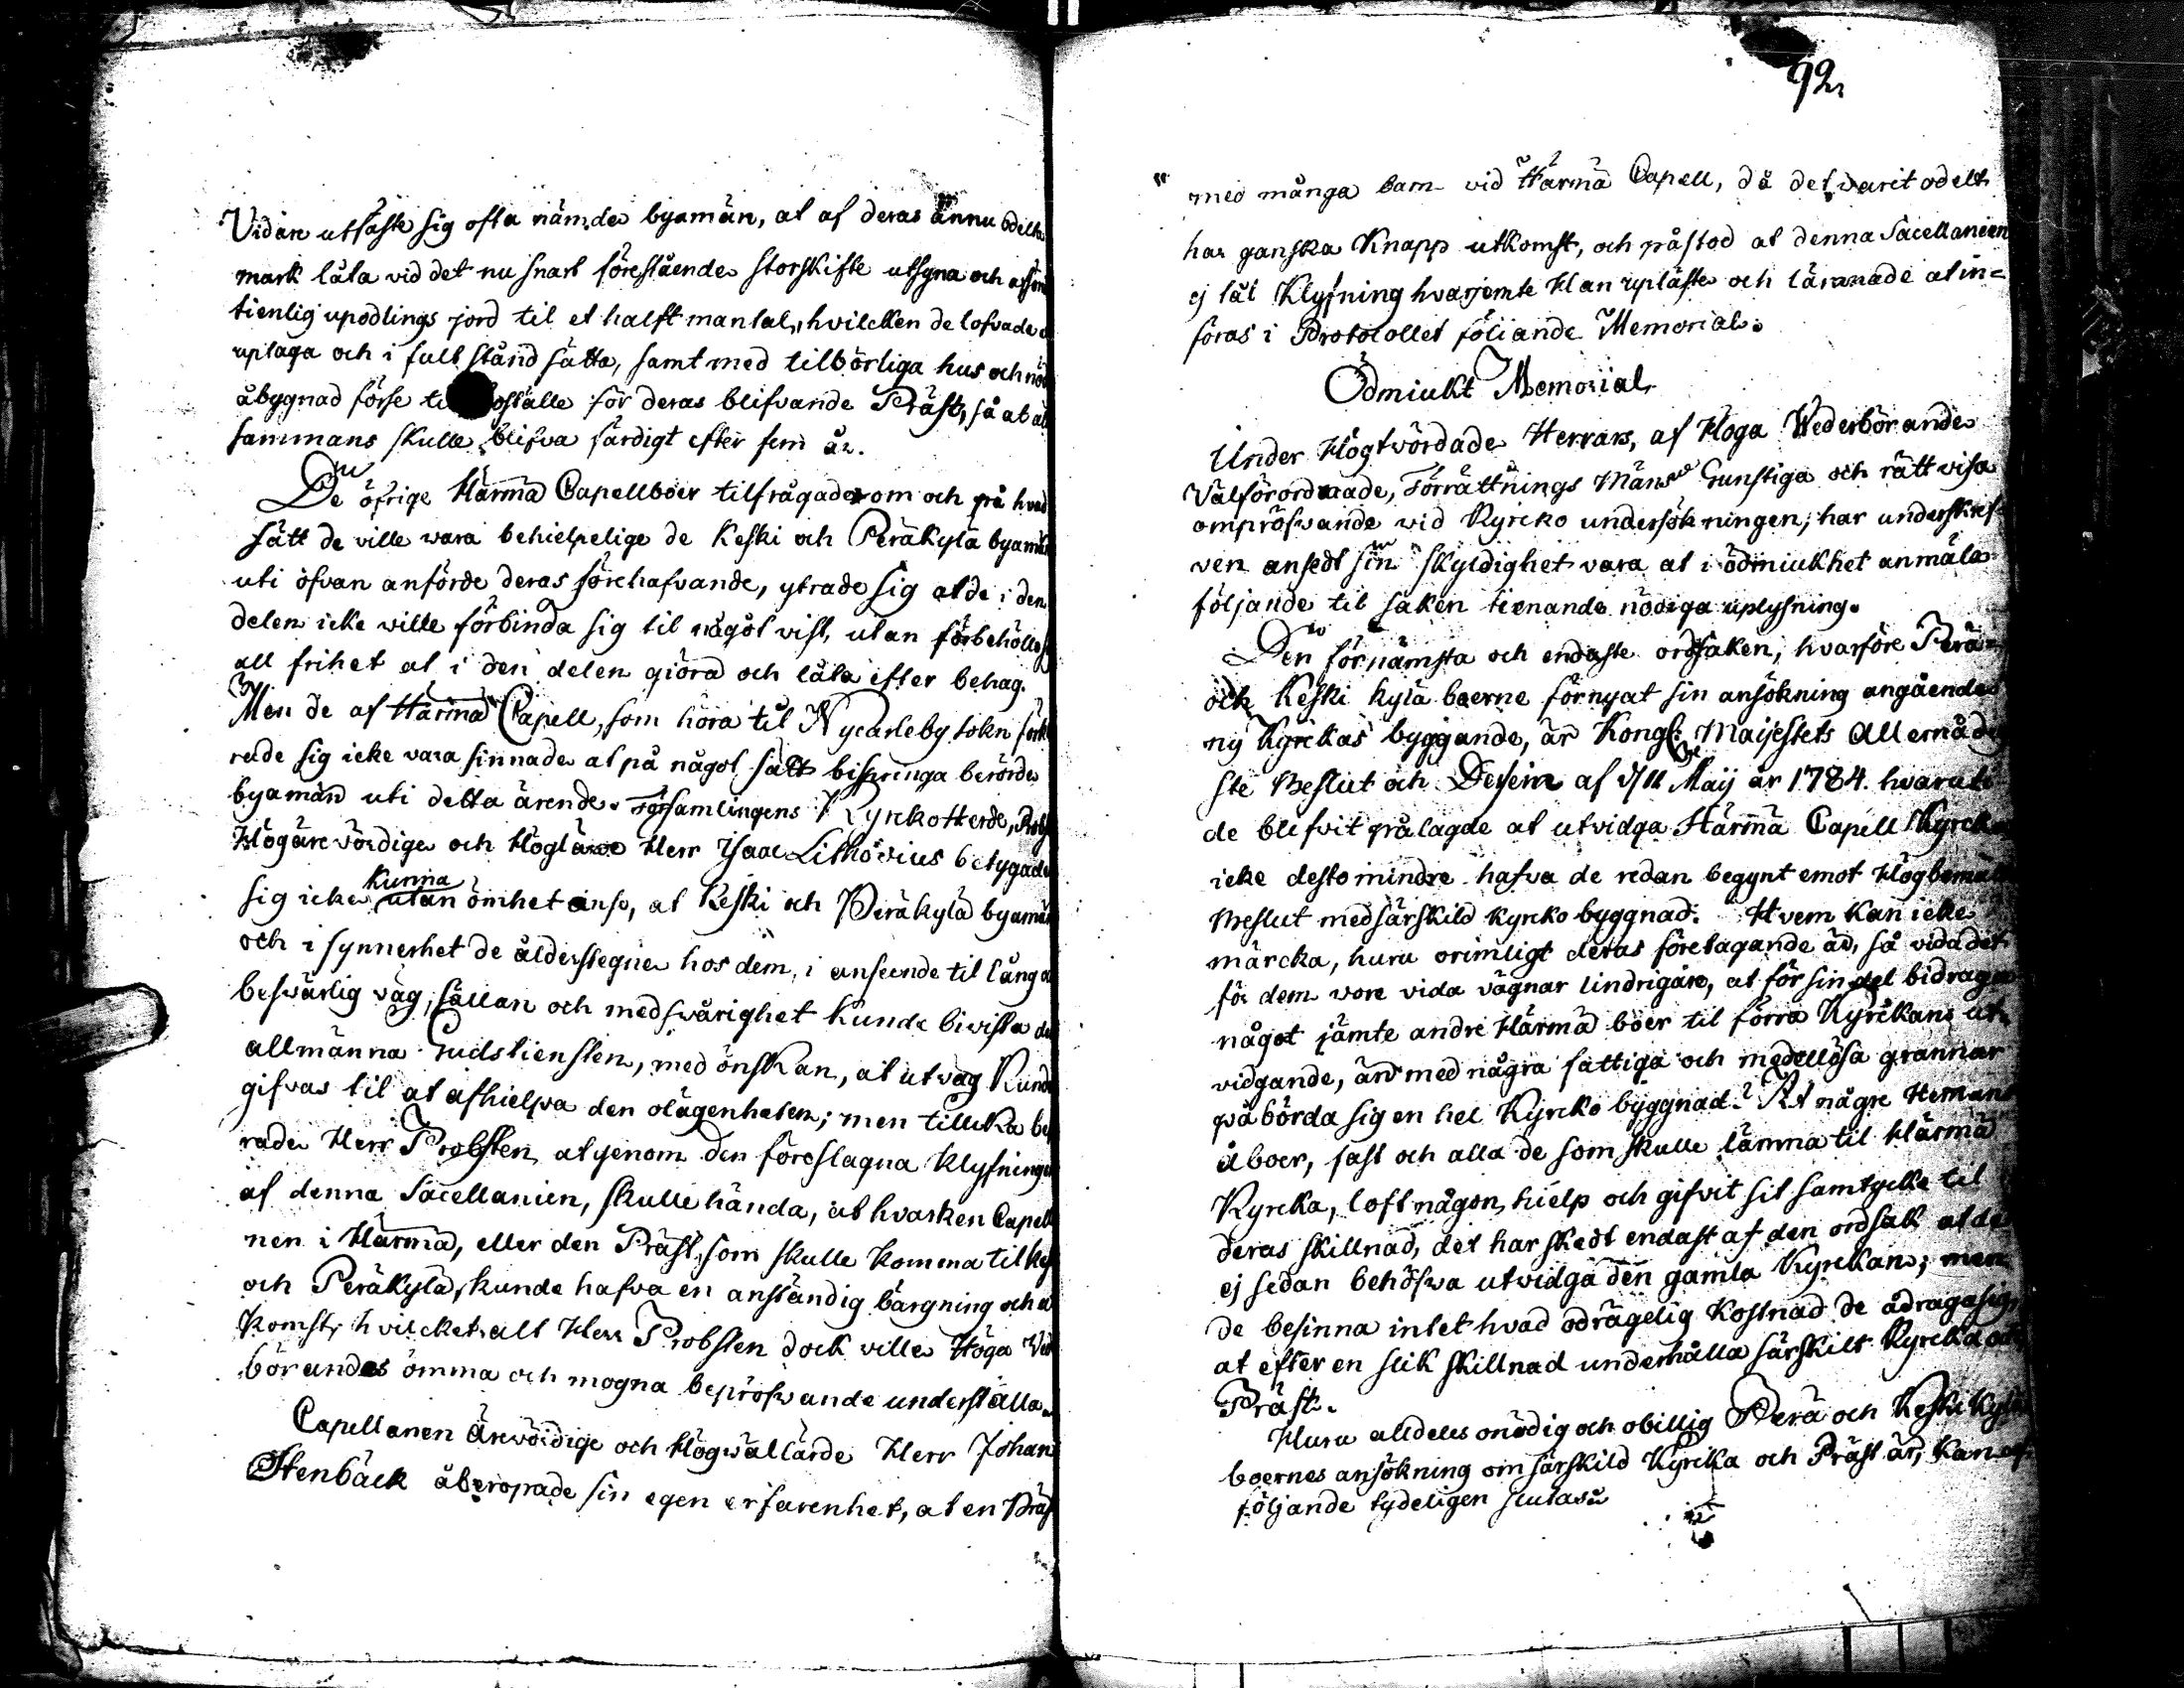 Vidare utfäste sig ofta nämde byamän, at af deras ännu odelte
mark låta vid det nu snart förestående storskifte utsyna och
tienlig upodlings jord til et halft mantal, hvilcken de lofvade
uptaga och i fult stånd sätta, samt med tilbörliga hus och
åbygnad förse för deras blifvande Präst, så at
sammans skulle blifva färdigt efter fem år.
De öfrige Härmä Capellboer tilfrågades om och på hvad
sätt de ville vara behielpelige de Keski och Peräkylä byamän
uti ofvan anförde deras förehafvande, ytrade sig at de i den
delen icke ville förbinda sig til något vist, utan förbehöllo
all frihet at i den delen giöra och låta efter behag.
Men de af Härmä Capell, som höra til Nycarleby sokn
rade sig icke vara sinnade at på något sätt bispringa berörde
byamän uti detta ärende. Församlingens KyrckoHerde,
Högärevördige och Höglärde Herr Isaac Lithovius betygade
sig icke kunna utan ömhet anse, at Keski och Peräkylä byamän
och i synnerhet de ålderstegne hos dem, i anseende til lång
besvärlig väg, sällan och med svårighet kunde bivista
allmänna Gudstiensten, med önskan, at utväg kunde
gifvas til at afhielpa den olägenheten; men tillika
rade Herr Probsten, at genom den föreslagna klyfningen
af denna Sacellanien, skulle hända, at hvarken
nen i Härmä, eller den Präst, som skulle komma til
och Peräkylä, kunde hafva en anständig bärgning och
komst, hvilcket alt Herr Probsten dock ville Höga
börandes ömma och mogna bepröfvande underställa.
Capellanen Ärevördige och Högwällärde Herr Johan
Stenbäck åberopade sin egen erfarenhet, at en Präst
92.
med många barn vid Härmä Capell, då det varit odelt
har ganska knapp utkomst, och påstod at denna Sacellanien
ej tål klyfning hvarjemte Han upläste och lämnade at in=
föras i Protocollet föliande Memorial.
Ödmiukt Memorial
Under Högtvördade Herrars, af Höga Wederbörande
Välförordnade, Förrättnings Mäns Gunstiga och rättvisa
ompröfvande vid Kyrcko undersökningen, har underskref=
ven ansedt sin skyldighet vara at i ödmiukhet anmäla
följande til saken tienande nödiga uplysning.
Den förnämsta och endaste ordsaken, hvarföre Perä=
och Keski kylä boerne förnyat sin ansökning angående
ny Kyrckas byggande, är Kongl: Maijestets Allernådi
ste Beslut och af Maij år 1784. hvaruti
de blifvit pålagde at utvidga Härmä Capell Kyrcka
icke desto mindre hafva de redan begynt emot Högbemälte
Beslut med särskild kyrcko byggnad. Hvem kan icke
märcka, huru orimligt deras företagande är, så vida det
för dem vore vida vägnar lindrigare, at för sin del bidraga
något jämte andre Härmä boer til förra Kyrckans ut=
vidgande, än med några fattiga och medellösa grannar
påbörda sig en hel Kyrcko byggnad? At någre Hemans
åboer, fast och alla de som skulle lämna til Härmä
Kyrcka, loft någon hielp och gifvit sit samtycke til
deras skillnad, det har skedt endast af den ordsak at de
ej sedan behöfva utvidga den gamla Kyrckan; men
de besinna intet hvad odrägelig kostnad de ådraga sig,
at efter en slik skillnad underhålla särskilt Kyrcka och
Präst.
Huru alldeles onödig och obillig Perä och Keski Kylä
boernes ansökning om särskild Kyrcka och Präst är, kan af
följande tydeligen slutas.